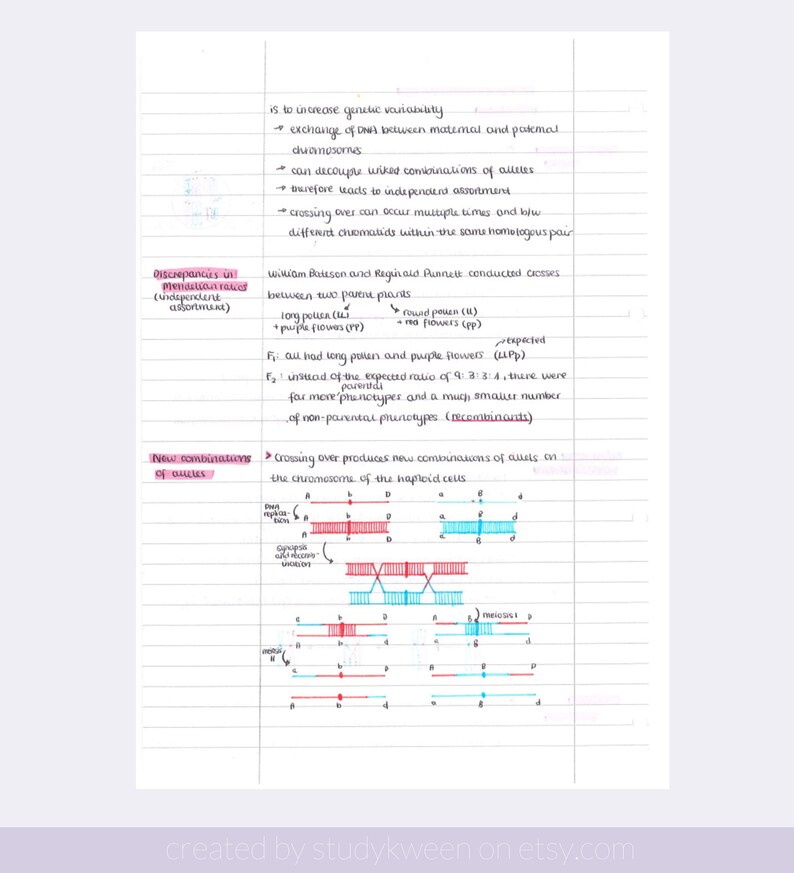 is to increase genetic variability
→ exchange of DNA between maternal and paternal
chromosomes
→ can decouple linked combinations of alleles
→ therefore leads to independent assortment
→ crossing over can occur multiple times and b/w
different chromatids within the same homologous pair
Discrepancies in
Mendelian ratios
(independent
assortment)
William Bateson and Reginald Punnett conducted crosses
between two parent plants
long pollen (LL)
+ purple flowers (PP)
round pollen (ll)
+ red flowers (pp)
expected
F₁: all had long pollen and purple flowers (LlPp)
F₂: instead of the expected ratio of 9:3:3:1, there were
parental
far more phenotypes and a much smaller number
of non-parental phenotypes (recombinants)
New combinations
of alleles
> Crossing over produces new combinations of allels on
the chromosome of the haploid cells
A b D a B d
DNA
replica-
tion
A b D a B d
A b D a B d
synapsis
and recombi-
nation
meiosis I
a b D A B D
A b d a B d
meiosis
II
a b D A B D
A b d a B d
created by studykween on etsy.com